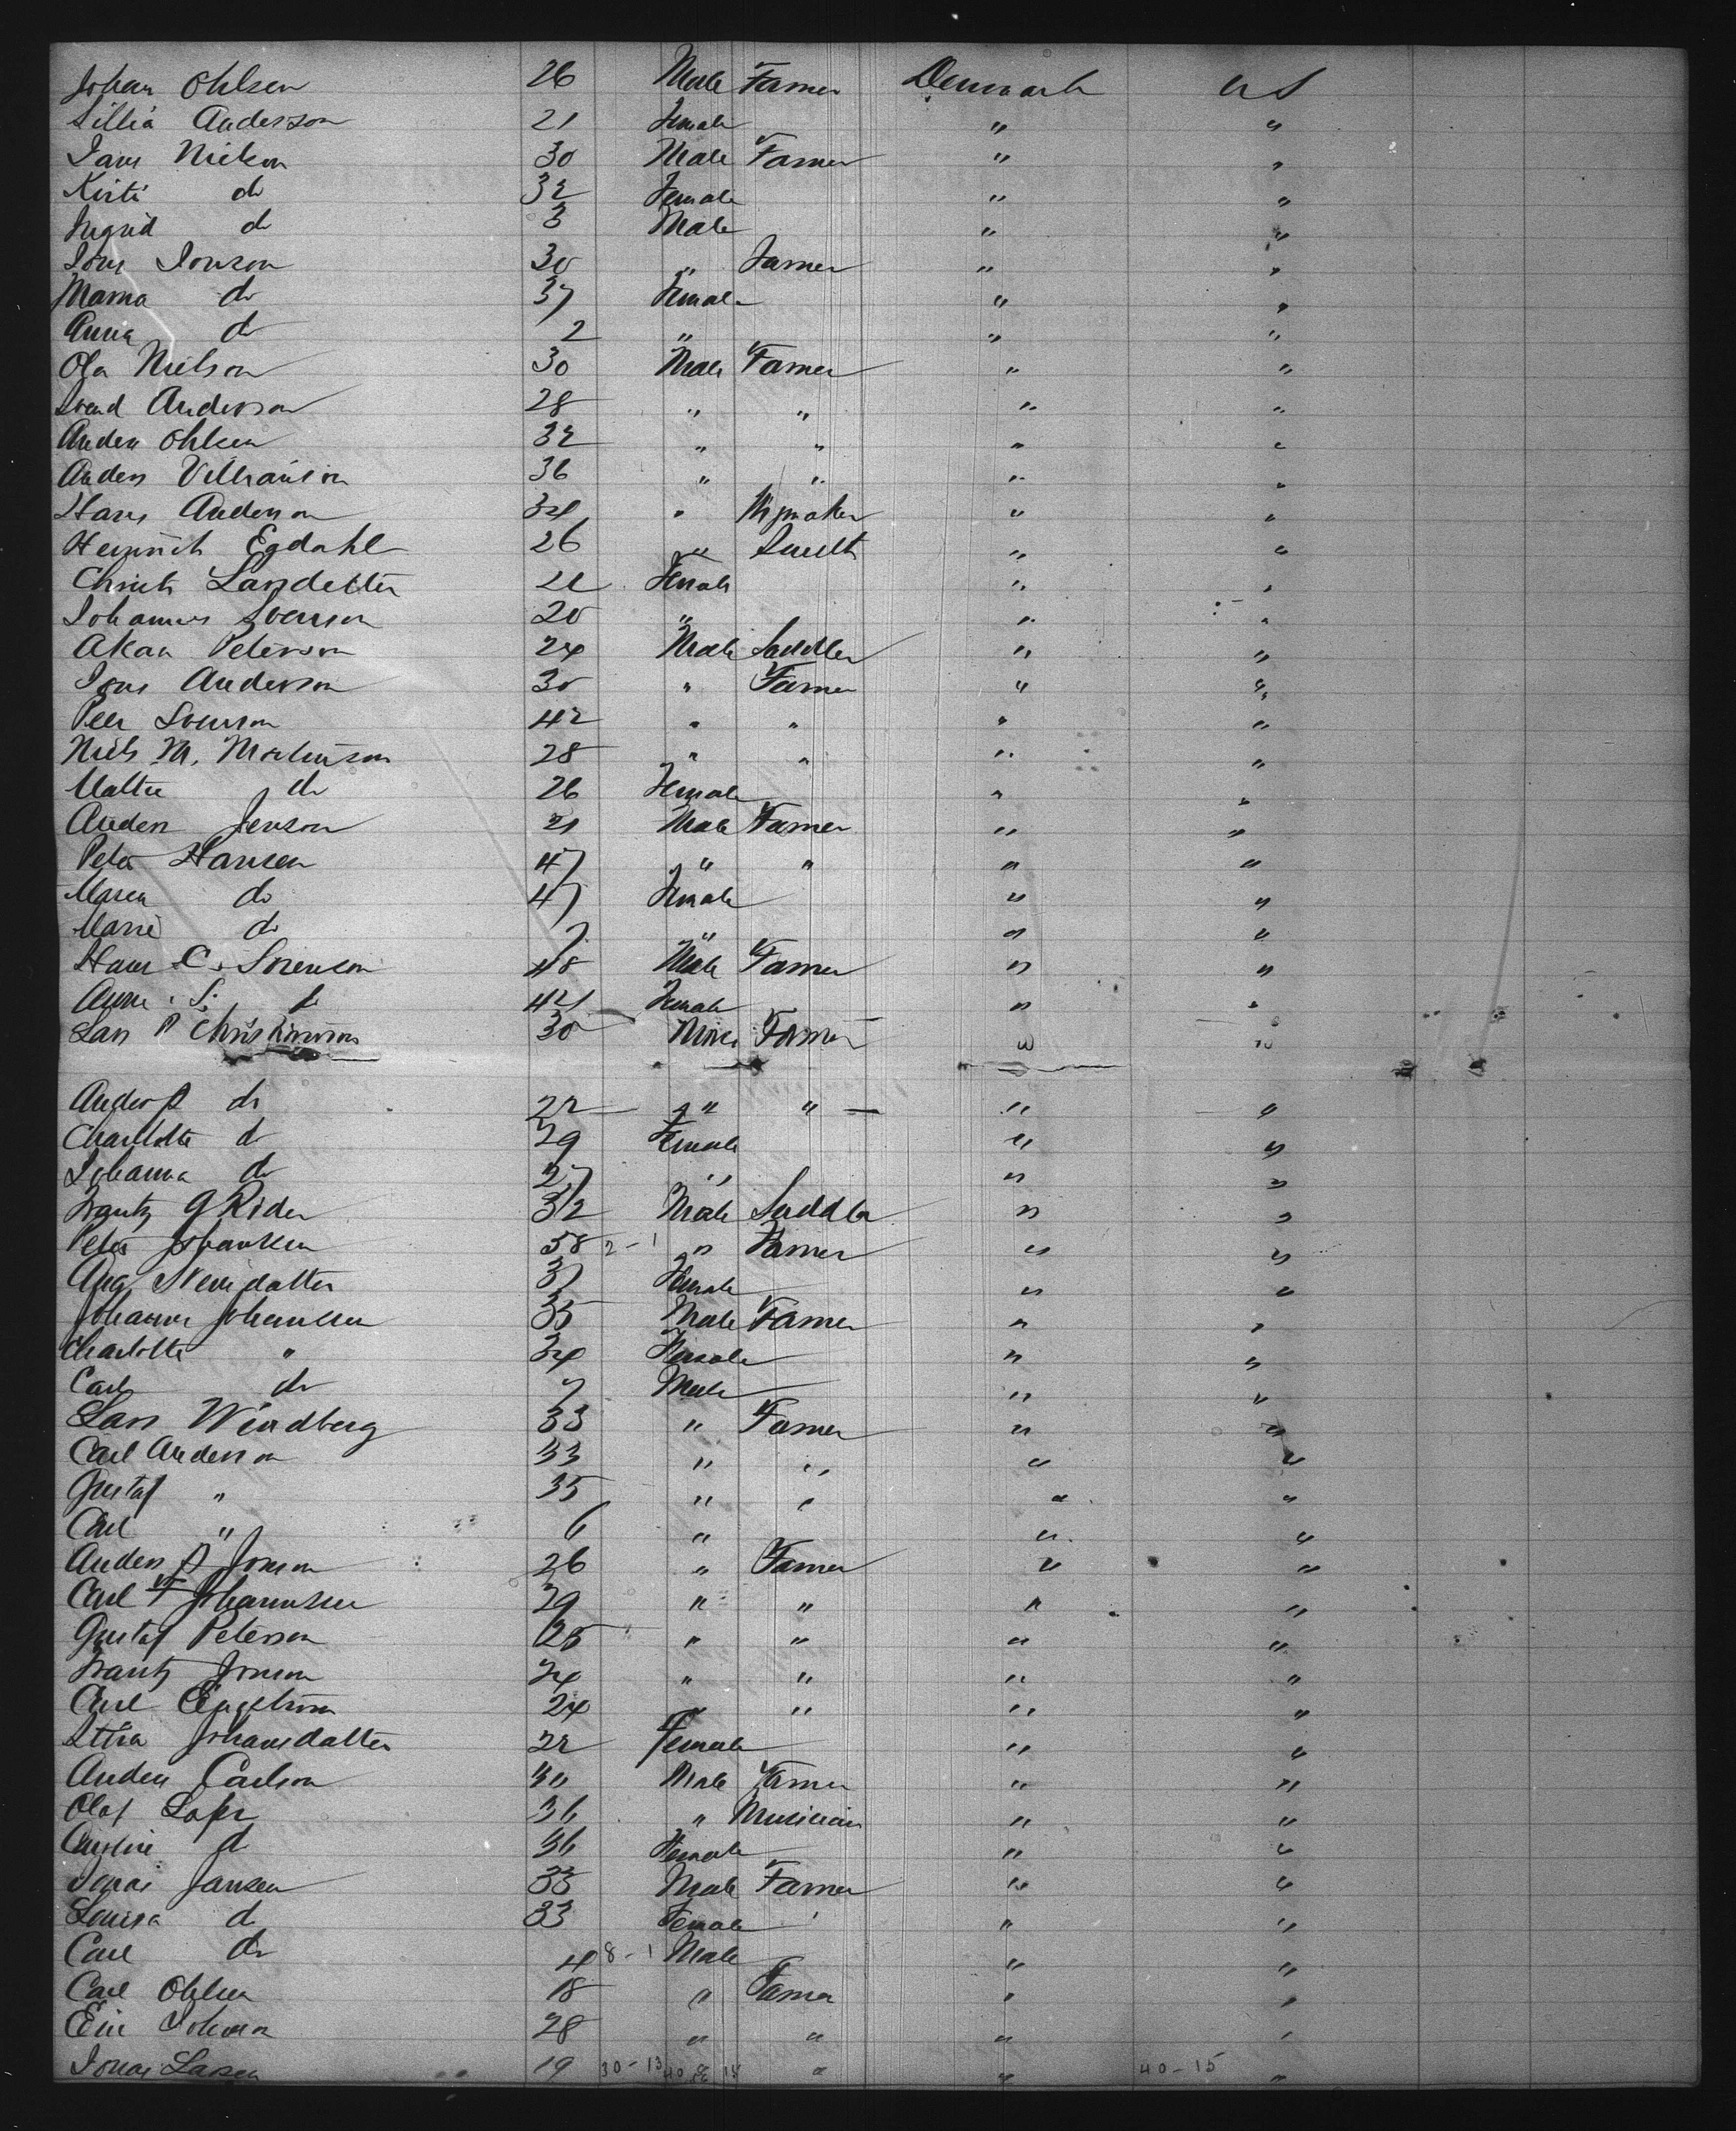 Johan Ohlsen 26 Male Farmer Denmark US
Sillia Anderson 21 Female " "
Jans Nielson 30 Male Farmer " "
Kirsti do 32 Female " "
Ingrid do 3 Male " "
Jons Jonson 30 " Farmer " "
Mama do 37 Female " "
Anna do 2 " " "
Ola Nielson 30 Male Farmer " "
Svend Anderson 28 " " " "
Anders Ohlsen 32 " " " "
Anders 36 " " " "
Hans Anderson 34 " " "
Heinrich Egdahl 26 " Smith " "
Landetter Female " "
Johannes Svenson 20 " " "
Akan Peterson 24 Male Saddler " "
Jons Anderson 30 " Farmer " "
Peer Svenson 42 " " " "
Niels M. Mortenson 28 " " " "
Maltee do 26 Female " "
Anders Jenson 21 Male Farmer " "
Peter Hansen 47 " " " "
Maren do 47 Female " "
Marie do 7 " " "
Hans C. Sorenson 48 Male Farmer " "
Anne S. do Female " "
Lars P 30 Male Farmer " "
Anders P do 22 " " " "
Charlotte do 29 Female " "
Johanna do 27 " " "
Frantz G Rider 32 Male Saddler " "
Peter Johansen 58 2-1 " Farmer " "
Aug. 37 Female " "
Johannes Johansen 35 Male Farmer " "
Charlotte " 34 Female " "
Carl do 7 Male " "
Lars Windberg 33 " Farmer " "
Carl Anderson 33 " " " "
Gustaf " 35 " " " "
Carl " 6 " " "
Anders P Jonson 26 " Farmer " "
Carl F Johannsen 29 " " " "
Gustaf Peterson 25 " " " "
Frantz Jonson 24 " " " "
Carl Engelstrom 24 " " " "
Johansdatter 22 Female " "
Anders Carlson 30 Male Farmer " "
Olof 36 " Musician " "
do 36 Female " "
Jonas Jansen 33 Male Farmer " "
Louisa do 33 Female " "
Carl do 4 8-1 Male " "
Carl Ohlsen 18 " Farmer " "
28 " " " "
Jonas Larsen 19 30-13 40 15 " " 40-15 "